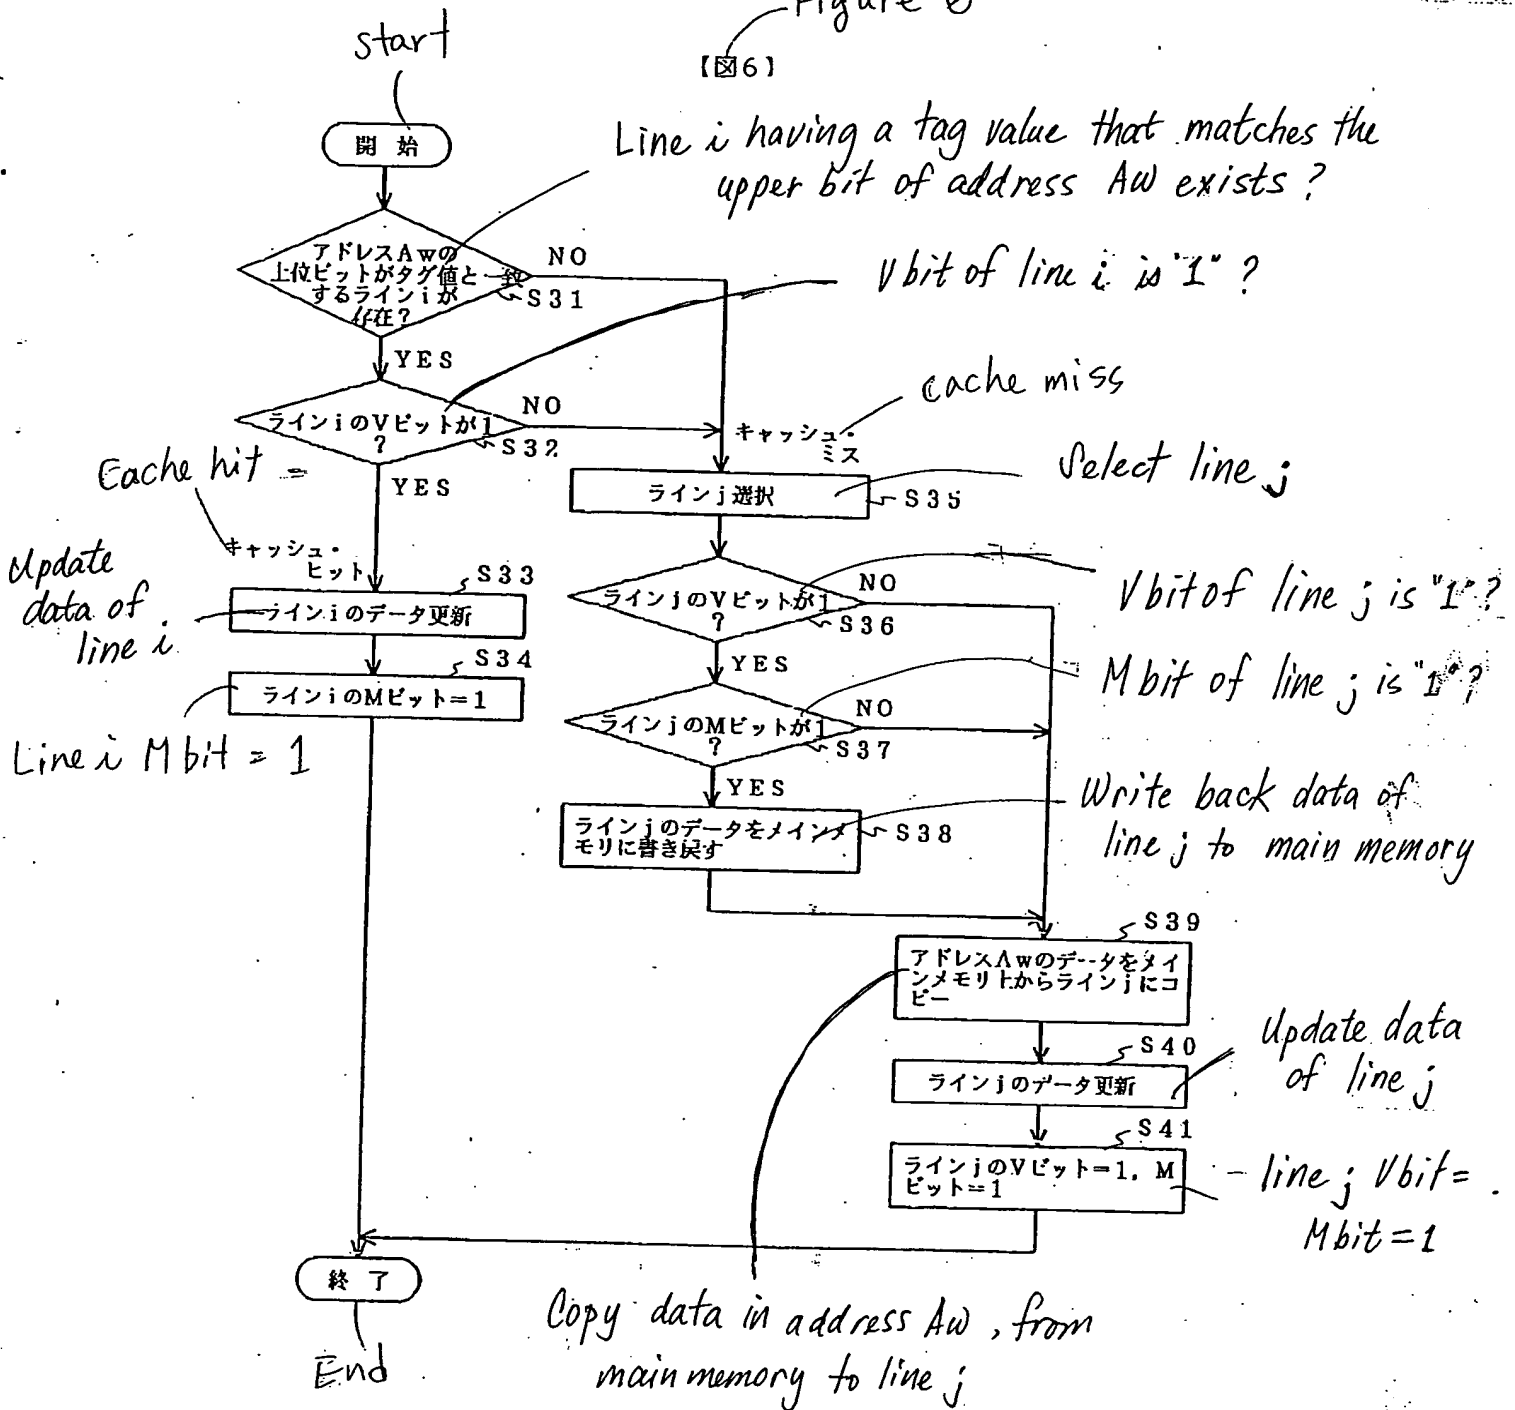 Figure 6
【図6】
start
開始
Line i having a tag value that matches the
upper bit of address Aw exists?
アドレスAwの
上位ビットがタグ値と一致
するラインiが
存在?
NO
S31
YES
V bit of line i is "1"?
ラインiのVビットが1
?
NO
S32
YES
cache miss
キャッシュ・
ミス
Cache hit =
キャッシュ・
ヒット
Select line j
ラインj選択
S35
Update
data of
line i
S33
ラインiのデータ更新
S34
ラインiのMビット=1
Line i M bit = 1
ラインjのVビットが1
?
NO
S36
YES
V bit of line j is "1"?
ラインjのMビットが1
?
NO
S37
YES
M bit of line j is "1"?
ラインjのデータをメインメ
モリに書き戻す
S38
Write back data of
line j to main memory
S39
アドレスAwのデータをメイ
ンメモリ上からラインjにコ
ピー
S40
ラインjのデータ更新
Update data
of line j
S41
ラインjのVビット=1. M
ビット=1
line j V bit =
M bit = 1
終了
End
Copy data in address Aw, from
main memory to line j